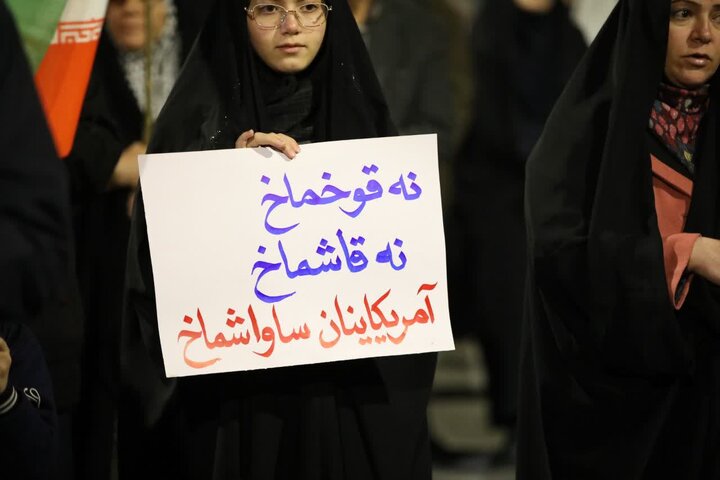 نه قوخماخ
نه قاشماخ
آمریکاینان ساواشماخ